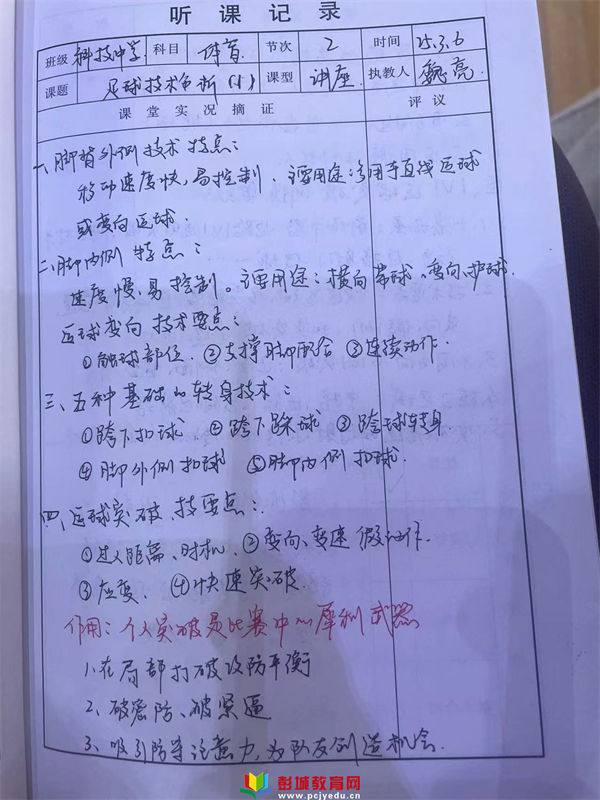 听课记录
班级 科技中学 科目 体育 节次 2 时间 25.3.6
课题 足球技术分析(1) 课型 讲座 执教人 魏亮
课堂实况摘证 评议
一、脚背外侧技术特点：
移动速度快，易控制、主要用途：多用于直线运球
或变向运球.
二、脚内侧特点：
速度慢、易控制。主要用途：横向带球、变向、护球.
运球变向技术要点：
①触球部位. ②支撑脚配合 ③连续动作.
三、五种基础的转身技术：
①跨下扣球 ②跨下踩球 ③跨球转身
④脚外侧扣球 ⑤脚内侧扣球.
四、运球突破、技要点：
①过人距离、时机, ②变向、变速 假动作.
③应变、④快速突破.
作用：个人突破是比赛中的犀利武器
1.在局部打破攻防平衡
2、破密防、破紧逼
3、吸引防守注意力，为队友创造机会.
彭城教育网
www.pcjyedu.cn